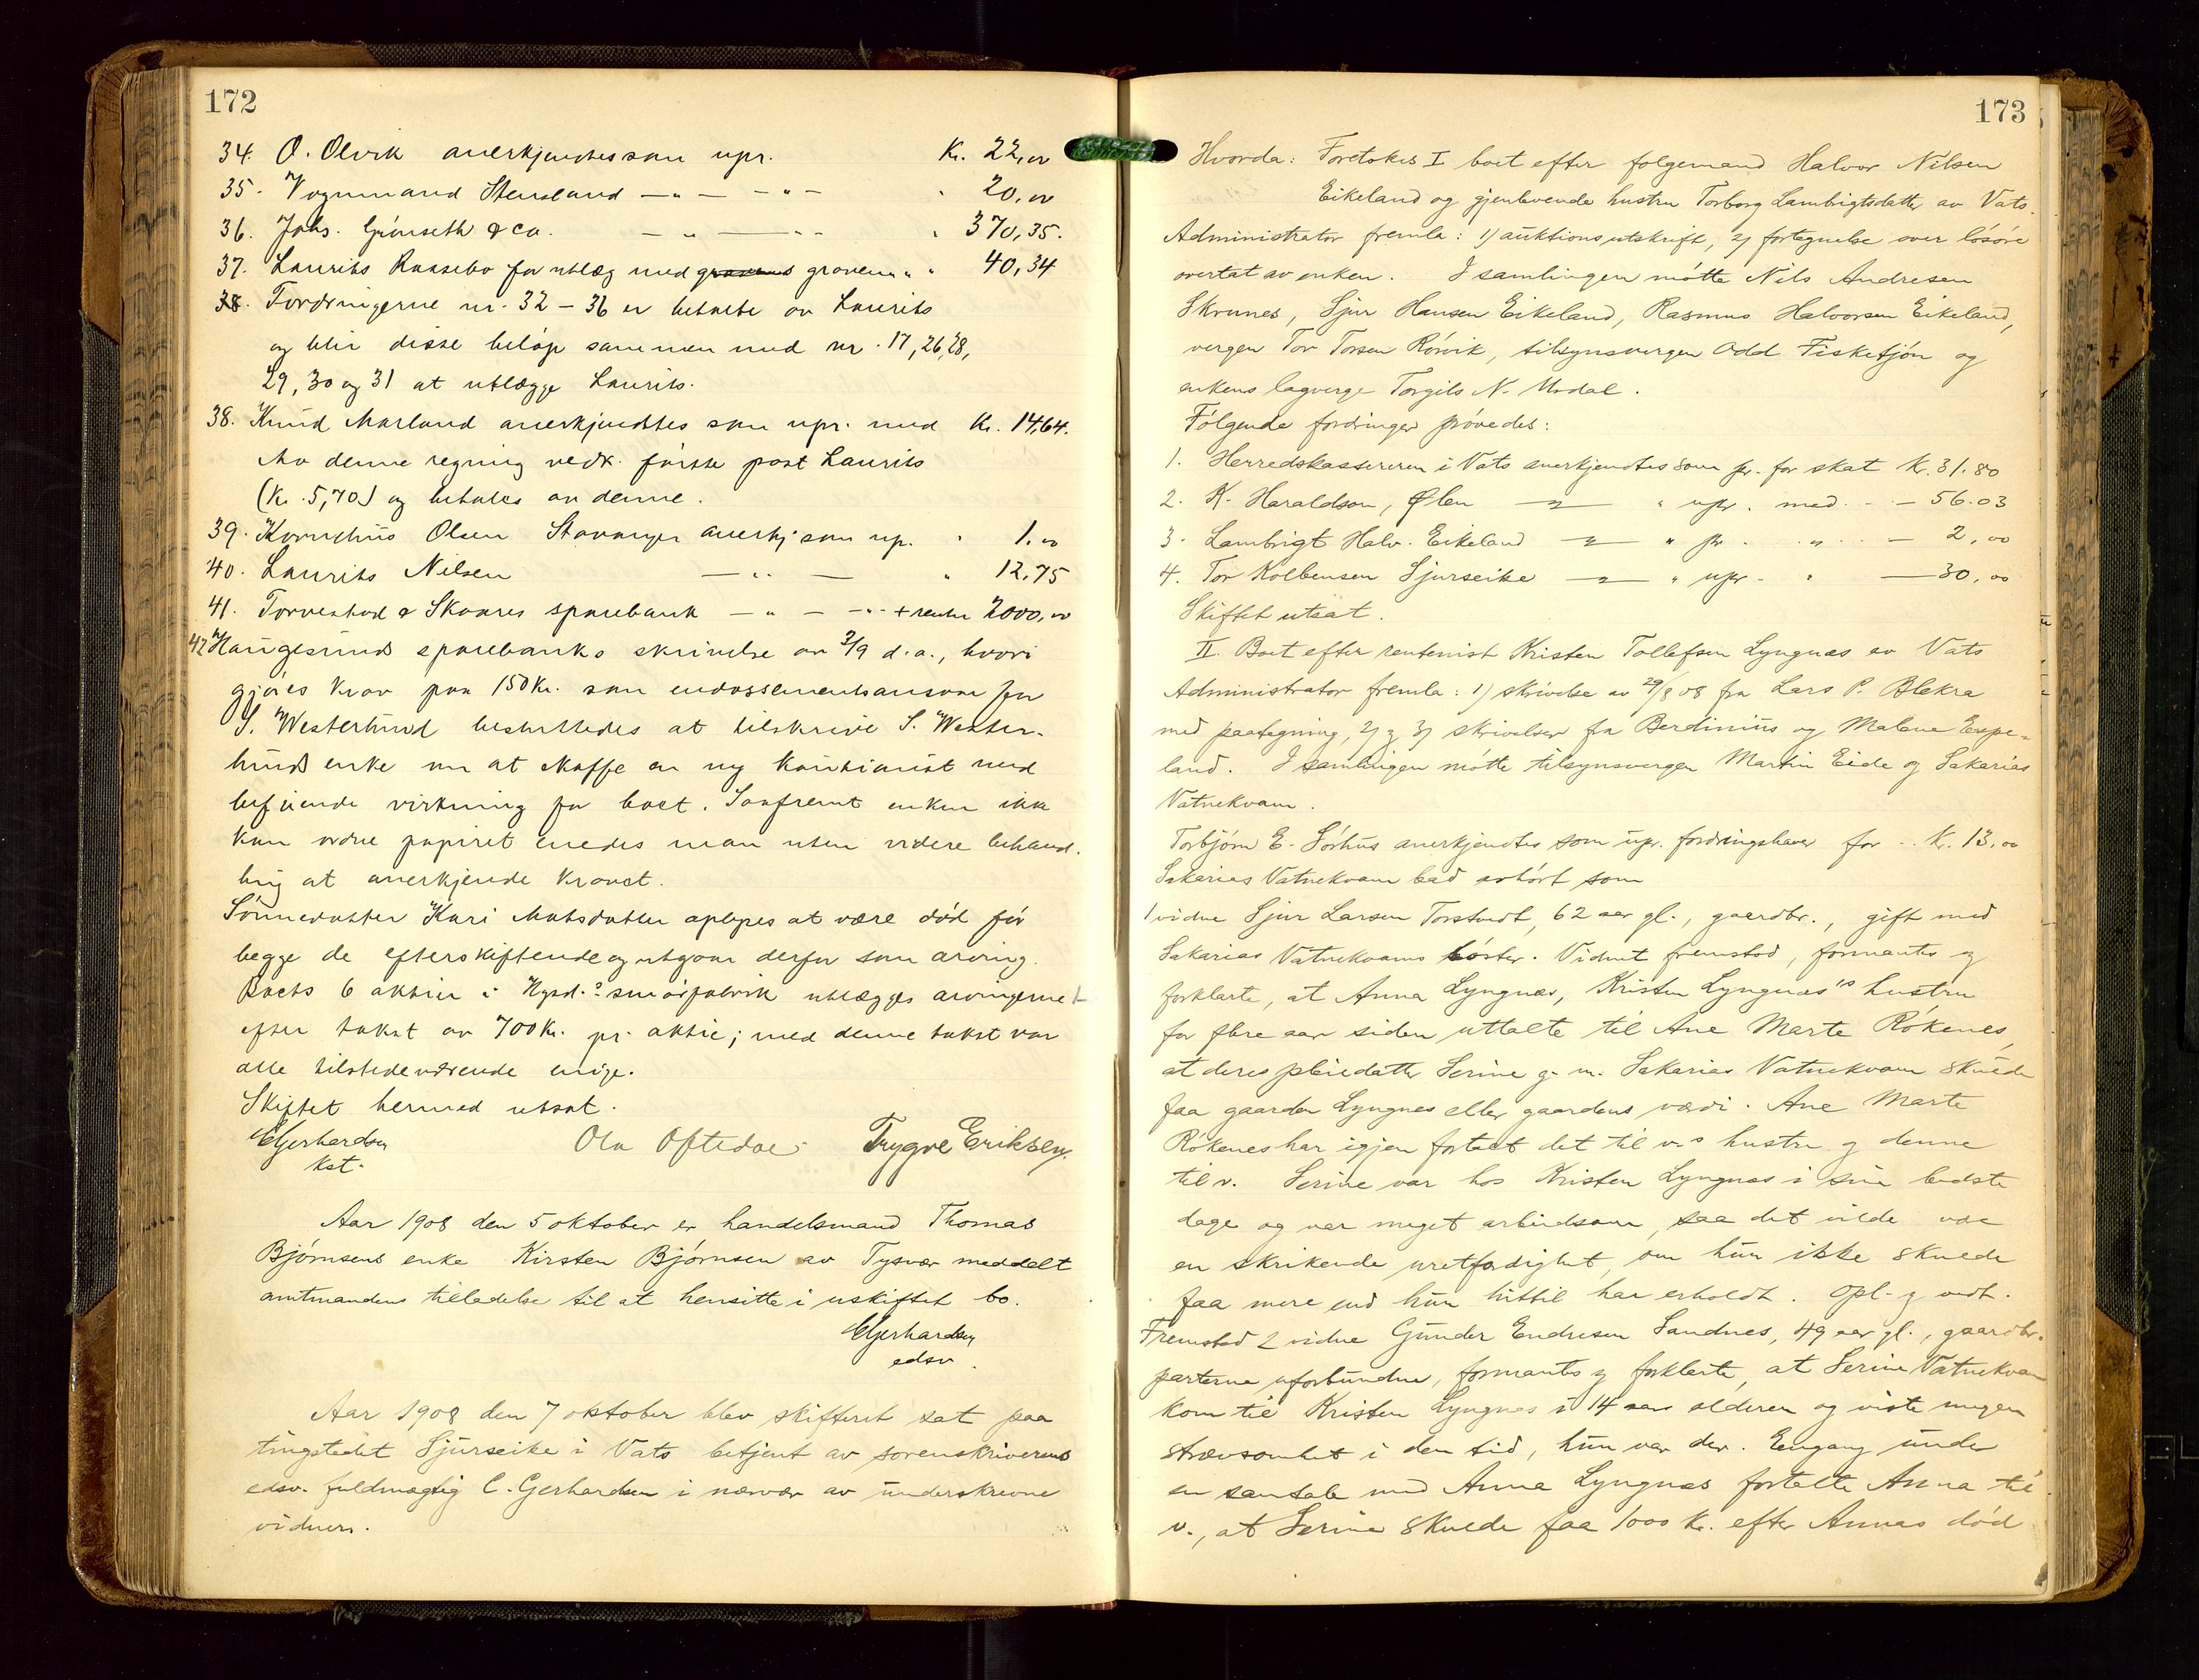 172
34. O. Olvik anerkjendtes som upr. Kr. 22,00
35. Vognmand Stensland —"— —"— " 20,00
36. Johs. Grönseth & Co. —"— —"— " 370,35.
37. Laurits Raasebø for utlæg med graven " " 40,34
38. Fordringerne nr. 32 – 36 er betalte av Laurits
og blir disse beløp sammen med nr. 17, 26, 28,
29, 30 og 31 at utlægge Laurits.
38. Knud Marland anerkjendtes som upr. med Kr. 14,64.
Av denne regning vedk. første post Laurits
(Kr. 5,70) og betales av denne.
39. Kornelius Olsen Stavanger anerkj. som up. " 1,00
40. Laurits Nilsen —"— " 12,75
41. Torvestad & Skaares sparebank —"— —"— + renter 2000,00
42 Haugesunds sparebanks skrivelse av 3/9 d.a., hvori
gjøres krav paa 150 Kr. som endossementsansvar for
S. Westerlund besluttedes at tilskrive S. Wester-
lunds enke om at skaffe en ny kautionist med
befriende virkning for boet. Saafremt enken ikke
kan ordne papiret enedes man uten videre behand-
ling at anerkjende kravet.
Sönnedatter Kari Matsdatter oplyses at være død før
begge de efterskiftende og utgaar derfor som arving.
Boets 6 aktier i Hgsd.s smørfabrik utlægges arvingerne
efter takst av 700 Kr. pr. aktie; med denne takst var
alle tilstedeværende enige.
Skiftet hermed utsat.
CGerhardsen Ola Oftedal Trygve Eriksen
kst.
Aar 1908 den 5 oktober er handelsmand Thomas
Bjørnsens enke Kirsten Bjørnsen av Tysvær meddelt
amtmandens tilladelse til at hensitte i uskiftet bo.
CGerhardsen
edsv.
Aar 1908 den 7 oktober blev skifteret sat paa
tingstedet Sjurseike i Vats betjent av sorenskriverens
edsv. fuldmægtig C. Gerhardsen i nærvær av underskrevne
vidner.
173
Hvorda: Foretokes I boet efter følgemand Halvor Nilsen
Eikeland og gjenlevende hustru Torborg Lambrigtsdatter av Vats.
Administrator fremla: 1) auktionsutskrift, 2) fortegnelse over løsøre
overtat av enken. I samlingen møtte Nils Andresen
Skrunes, Sjur Hansen Eikeland, Rasmus Halvorsen Eikeland,
vergen Tor Torsen Rørvik, tilsynsvergen Odd Fisketjøn og
enkens lagverge Torgils N. Undal.
Følgende fordringer prøvedes:
1. Herredskassereren i Vats anerkjendtes som pr. for skat Kr. 31.80
2. K. Haraldson, Ølen —"— " upr. med — 56.03
3. Lambrigt Halv. Eikeland —"— " pr. " — 2,00
4. Tor Kolbensen Sjurseike —"— " upr. " — 30,00
Skiftet utsat.
II. Boet efter rentenist Kristen Tollefsen Lyngnæs av Vats
Administrator fremla: 1) skrivelse av 29/8 08 fra Lars P. Blekra
med paategning, 2) g 3) skrivelser fra Berdinius og Malene Espe-
land. I samlingen møtte tilsynsvergen Martin Eide og Sakarias
Vatnekvam.
Torbjørn E. Sørhus anerkjendtes som upr. fordringshaver for .. Kr. 13,00
Sakarias Vatnekvam bad avhørt som
1 vidne Sjur Larsen Torstvedt, 62 aar gl., gaardbr., gift med
Sakarias Vatnekvams søster. Vidnet fremstod, formantes g
forklarte, at Anna Lyngnæs, Kristen Lyngnæs's hustru
for flere aar siden uttalte til Ane Marte Rökenes,
at deres pleiedatter Serine g. m. Sakarias Vatnekvam skulde
faa gaarden Lyngnes eller gaardens værdi. Ane Marte
Rökenes har igjen fortalt det til v.s hustru g denne
til v. Serine var hos Kristen Lyngnæs i sine bedste
dage og var meget arbeidsom, saa det vilde være
en skrikende uretfærdighet, om hun ikke skulde
faa mere end hun hittil har erholdt. Opl. g vedt.
Fremstod 2 vidne Gunder Endresen Sandnes, 49 aar gl., gaardbr.
parterne uforbunden, formantes g forklarte, at Serine Vatnekvam
kom til Kristen Lyngnes i 14 aars alderen og viste megen
strævsomhet i den tid, hun var der. Engang under
en samtale med Anna Lyngnæs fortalte Anna til
v., at Serine skulde faa 1000 Kr. efter Annas død